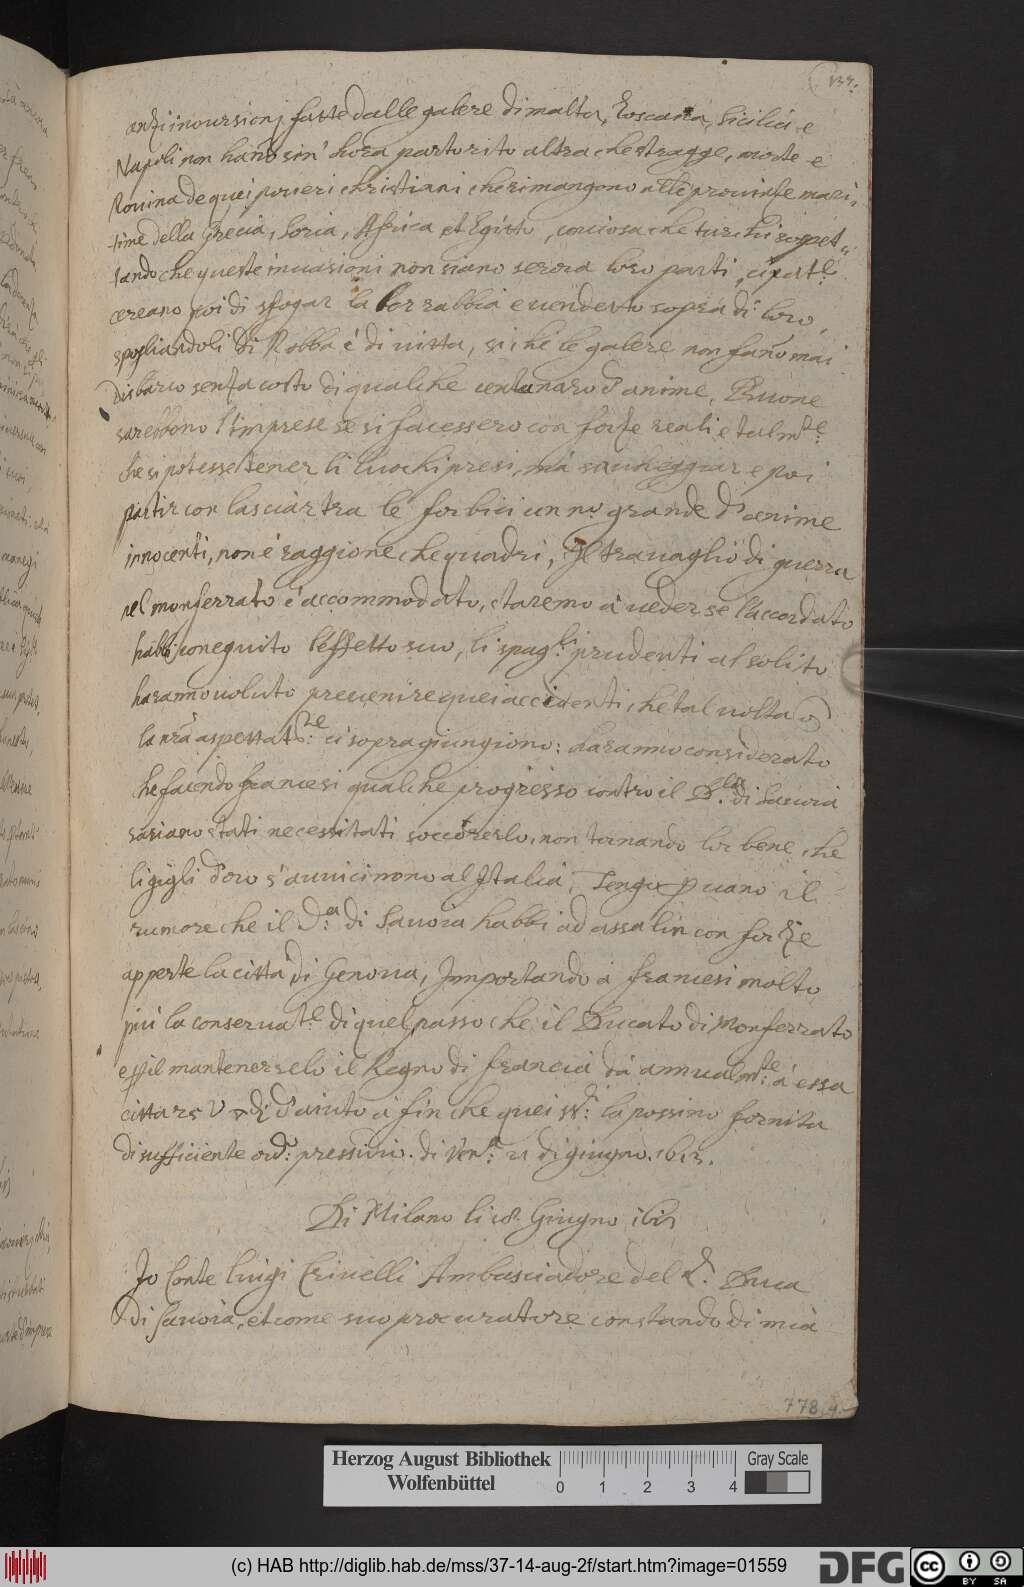 137.
anzi incursionj fatte dalle galere di malta, Toscana, Sicilia e
Napoli non hanō sin' hora partorito altra che stragge, morte e
Rouina de quei poueri christiani che rimangono alle prouintie mari,
time della Grecia, Soria, Africa et Egitto, conciosa che turchi sospet
tando che queste inuasioni non siano senza loro parti
cercano poi di sfogar la lor rabbia e uendetta sopra di loro,
spogliandoli di Robba é di uitta, si che le galere non fañō mai
disbarco senza costo di qualche centinaro d'anime, Buone
sarebbono l'imprese se si facessero con forze reali e talmte.
che si potesse tener li luochi presi, má sacheggiar e poi
partir con lasciar tra le forbici un no grande d'anime
innocenti, non é raggione che quadri, Il trauaglio di guerra
nel monferrato é accommodato, staremo á ueder se l'accordato
habbi coneguito l'effetto suo, li spagli. prudenti al solito
haranno uoluto preuenire quei accidenti, che tal uolta
la nr̄a aspettatne. ci sopragiungiono: haranno considerato
che facendo francesi qualche progresso contro il D. di Sauoia
sariano stati necessitati soccorerlo, non tornando lor bene, che
li gigli d'oro s'auuicinono al Italia, Tengo p uano il
rumore che il D.a di Sauoia habbi ad assalir con forze
apperte la città di Genoua, Importando á francesi molto
piú la conseruate. di quel passo che il Ducato di Monferrato
e p il mantenerselo il Regno di francia dá annualmte. á essa
citta d'aiuto á fin che quei ss.i la possino fornita
di sufficiente ord.: pressidio. di Ven.a 21 di giugno. 1613.
Di Milano li 18. Giugno 1613
Io Conte Luigi Criuelli Ambasciadore del S. Duca
di Sauoia, et come suo procuratore constando di mia
778.
Herzog August Bibliothek
Wolfenbüttel
0 1 2 3 4
Gray Scale
(c) HAB http://diglib.hab.de/mss/37-14-aug-2f/start.htm?image=01559
DFG
cc BY SA